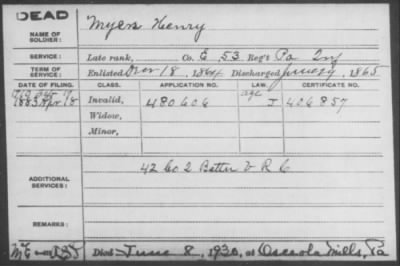 DEAD
NAME OF SOLDIER: Myers Henry
SERVICE: Late rank, Co. E 53 Reg't Pa Inf
TERM OF SERVICE: Enlisted 18, 1864 Discharged 1865
DATE OF FILING. CLASS. APPLICATION NO. LAW. CERTIFICATE NO.
1883 Apr 18 Invalid, 480606 J 406857
Widow,
Minor,
ADDITIONAL SERVICES: 42 Co 2 Battn V R C
REMARKS:
Died June 8, 1930, at Osceola Mills, Pa